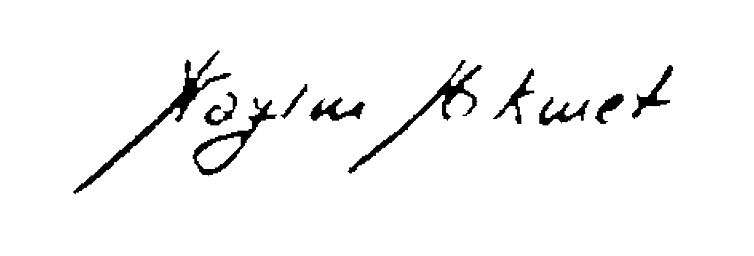 Nazım Hikmet